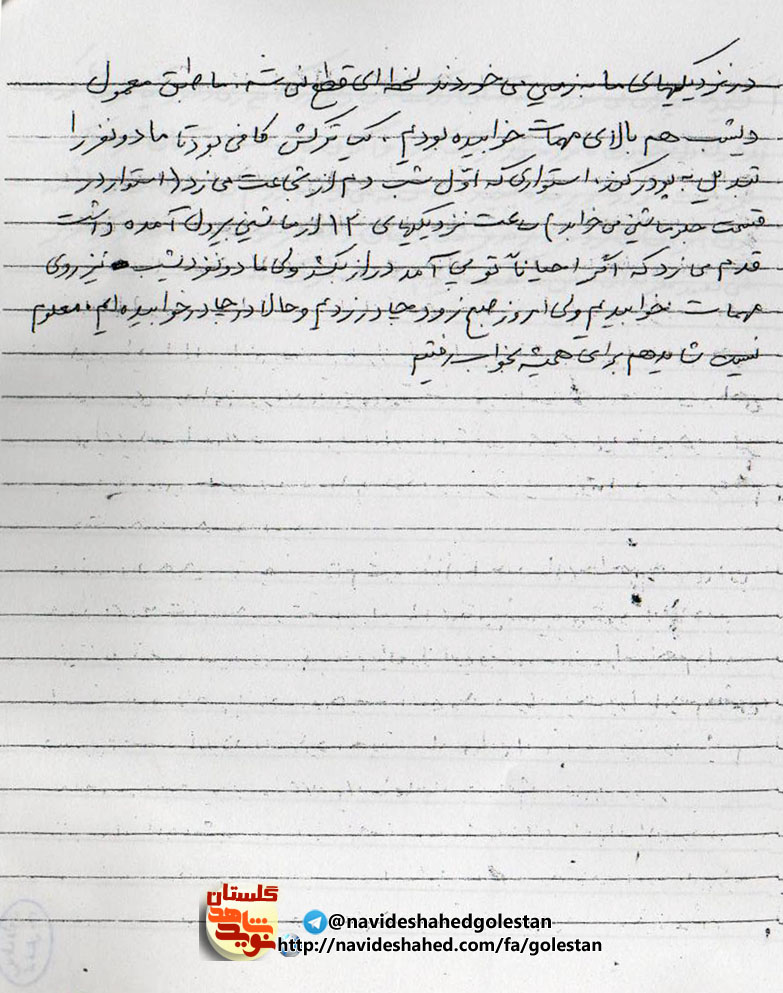 در نزدیکیهای ما به زمین می خوردند لحظه ای قطع نمی شد. ما طبق معمول
دیشب هم بالای مهمات خوابیده بودیم. یک ترکش کافی بود تا ما دو نفر را
تبدیل به پودر کند. استواری که اول شب دم از شجاعت می زد (استوار در
قسمت جلو ماشین می خوابد) ساعت نزدیکیهای ۱۲ از ماشین بیرون آمده داشت
قدم می زد که اگر احیاناً توپی آمد دراز بکشد ولی ما دو نفر دیشب نیز روی
مهمات خوابیدیم ولی امروز صبح زود چادر زدیم و حالا در چادر خوابیده ایم. معلوم
نیست شاید هم برای همیشه بخواب رفتیم
گلستان
نوید شاهد
@navideshahedgolestan
http://navideshahed.com/fa/golestan